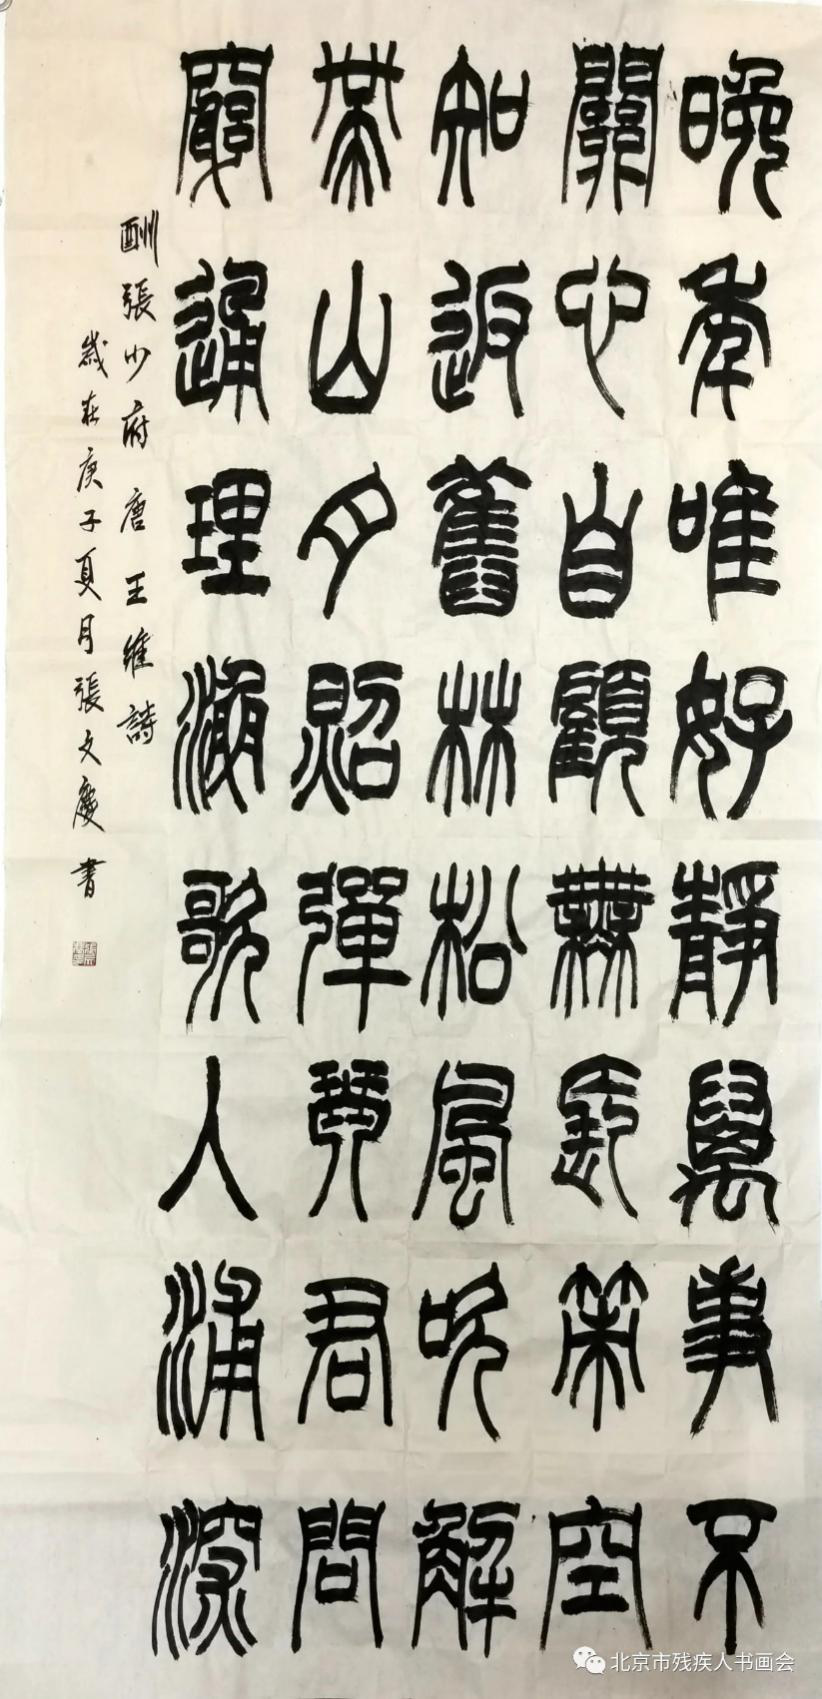 晚年唯好靜萬事不
關心自顧無長策空
知返舊林松風吹解
帶山月照彈琴君問
窮通理漁歌入浦深
酬張少府唐王維詩
歲在庚子夏月張文慶書
北京市残疾人书画会